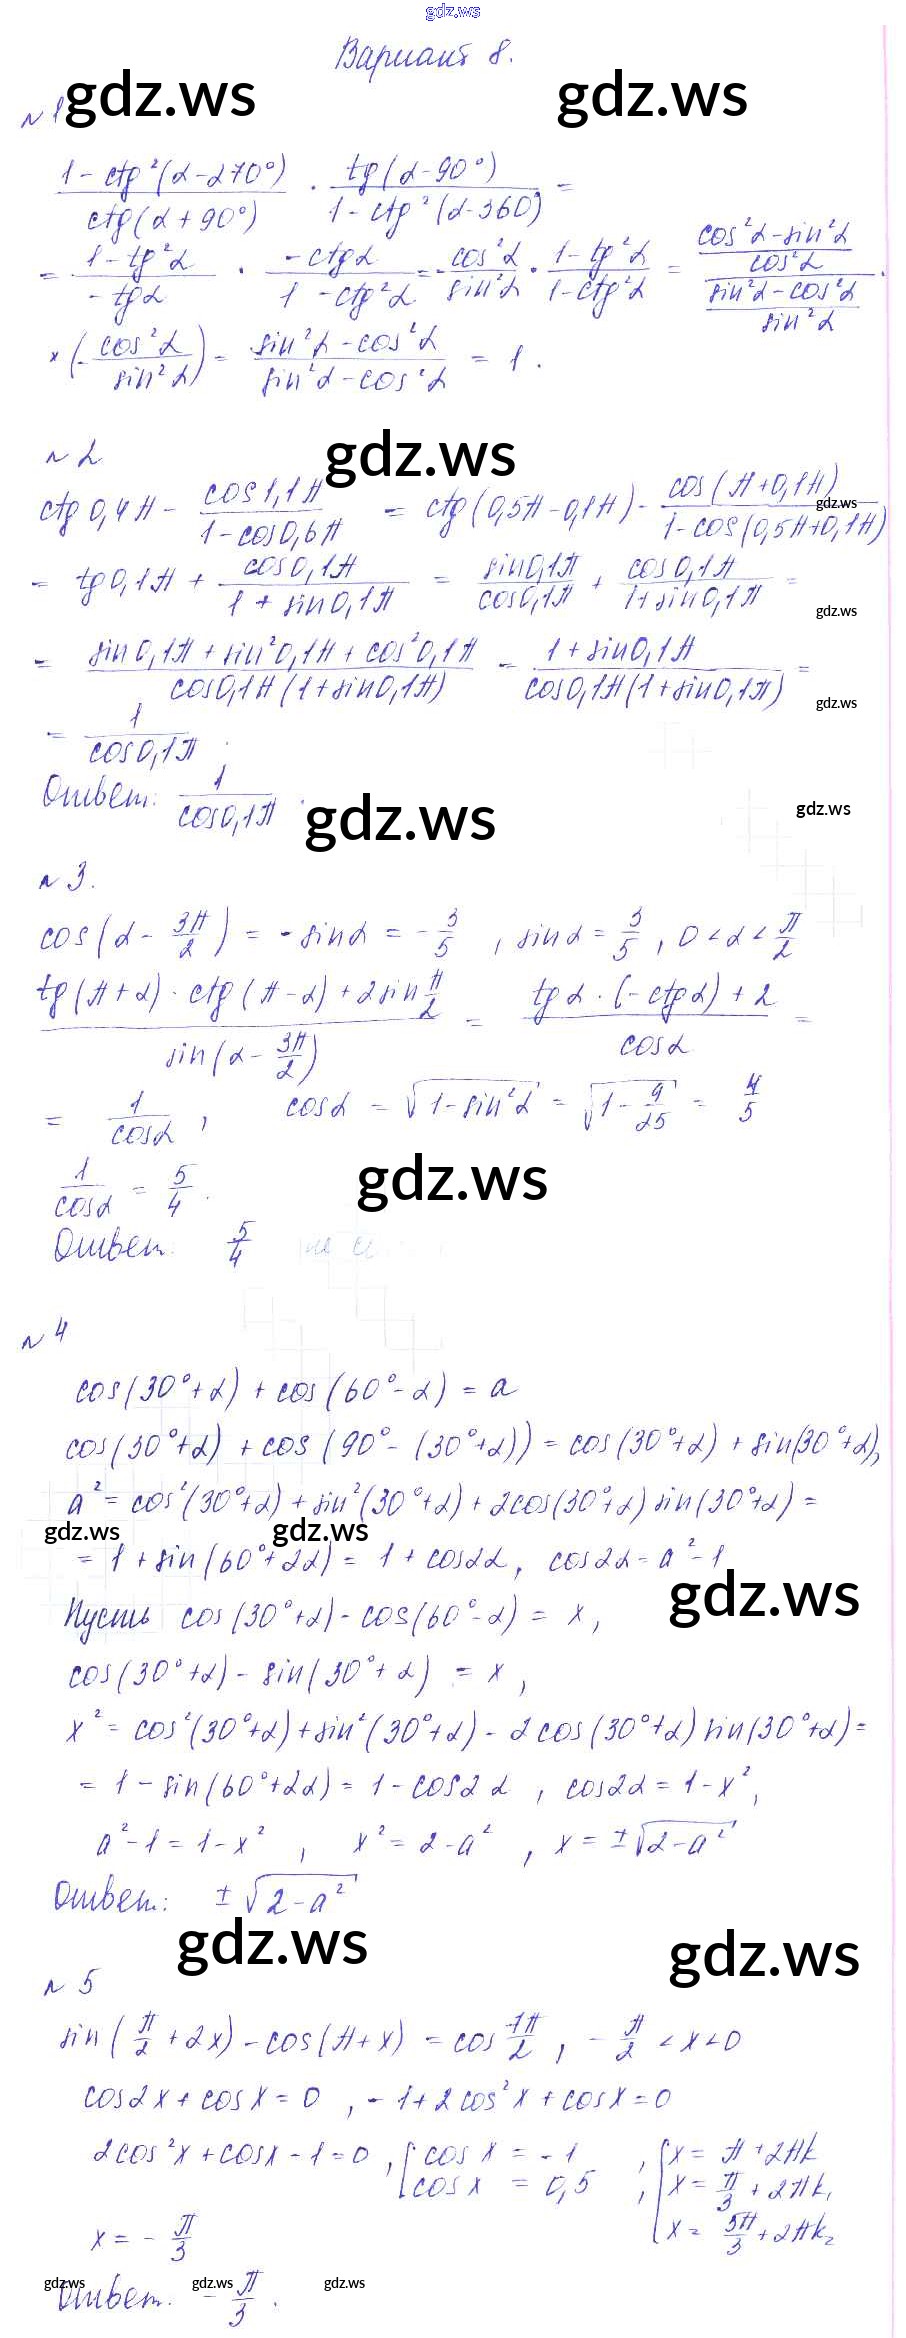 gdz.ws
Вариант 8.
gdz.ws gdz.ws
№ 1
(1 - ctg²(α - 270°))/(ctg(α + 90°)) · (tg(α - 90°))/(1 - ctg²(α - 360)) =
= (1 - tg²α)/(-tgα) · (-ctgα)/(1 - ctg²α) = - cos²α/sin²α · (1 - tg²α)/(1 - ctg²α) = ((cos²α - sin²α)/cos²α)/((sin²α - cos²α)/sin²α) ·
× (- cos²α/sin²α) = (sin²α - cos²α)/(sin²α - cos²α) = 1.
№ 2
gdz.ws
ctg 0,4π - cos1,1π/(1 - cos0,6π) = ctg(0,5π - 0,1π) - cos(π + 0,1π)/(1 - cos(0,5π + 0,1π))
gdz.ws
= tg0,1π + cos0,1π/(1 + sin0,1π) = sin0,1π/cos0,1π + cos0,1π/(1 + sin0,1π) =
gdz.ws
= (sin0,1π + sin²0,1π + cos²0,1π)/(cos0,1π(1 + sin0,1π)) = (1 + sin0,1π)/(cos0,1π(1 + sin0,1π)) =
gdz.ws
= 1/cos0,1π.
Ответ: 1/cos0,1π.
gdz.ws gdz.ws
№ 3.
cos(α - 3π/2) = - sinα = - 3/5, sinα = 3/5, 0 < α < π/2
(tg(π + α) · ctg(π - α) + 2sin π/2)/(sin(α - 3π/2)) = (tgα · (-ctgα) + 2)/cosα =
= 1/cosα, cosα = √(1 - sin²α) = √(1 - 9/25) = 4/5
1/cosα = 5/4.
gdz.ws
Ответ: 5/4
№ 4
cos(30° + α) + cos(60° - α) = a
cos(30° + α) + cos(90° - (30° + α)) = cos(30° + α) + sin(30° + α),
a² = cos²(30° + α) + sin²(30° + α) + 2cos(30° + α) sin(30° + α) =
gdz.ws gdz.ws
= 1 + sin(60° + 2α) = 1 + cos2α, cos2α = a² - 1
gdz.ws
Пусть cos(30° + α) - cos(60° - α) = x,
cos(30° + α) - sin(30° + α) = x,
x² = cos²(30° + α) + sin²(30° + α) - 2cos(30° + α) sin(30° + α) =
= 1 - sin(60° + 2α) = 1 - cos2α, cos2α = 1 - x²,
a² - 1 = 1 - x², x² = 2 - a², x = ±√(2 - a²)
Ответ: ±√(2 - a²)
gdz.ws gdz.ws
№ 5
sin(π/2 + 2x) - cos(π + x) = cos 7π/2, - π/2 < x < 0
cos2x + cosx = 0, - 1 + 2cos²x + cosx = 0
2cos²x + cosx - 1 = 0, [cos x = - 1, [x = π + 2πk
cos x = 0,5, x = π/3 + 2πk₁
x = 5π/3 + 2πk₂
x = - π/3
Ответ: - π/3.
gdz.ws gdz.ws gdz.ws